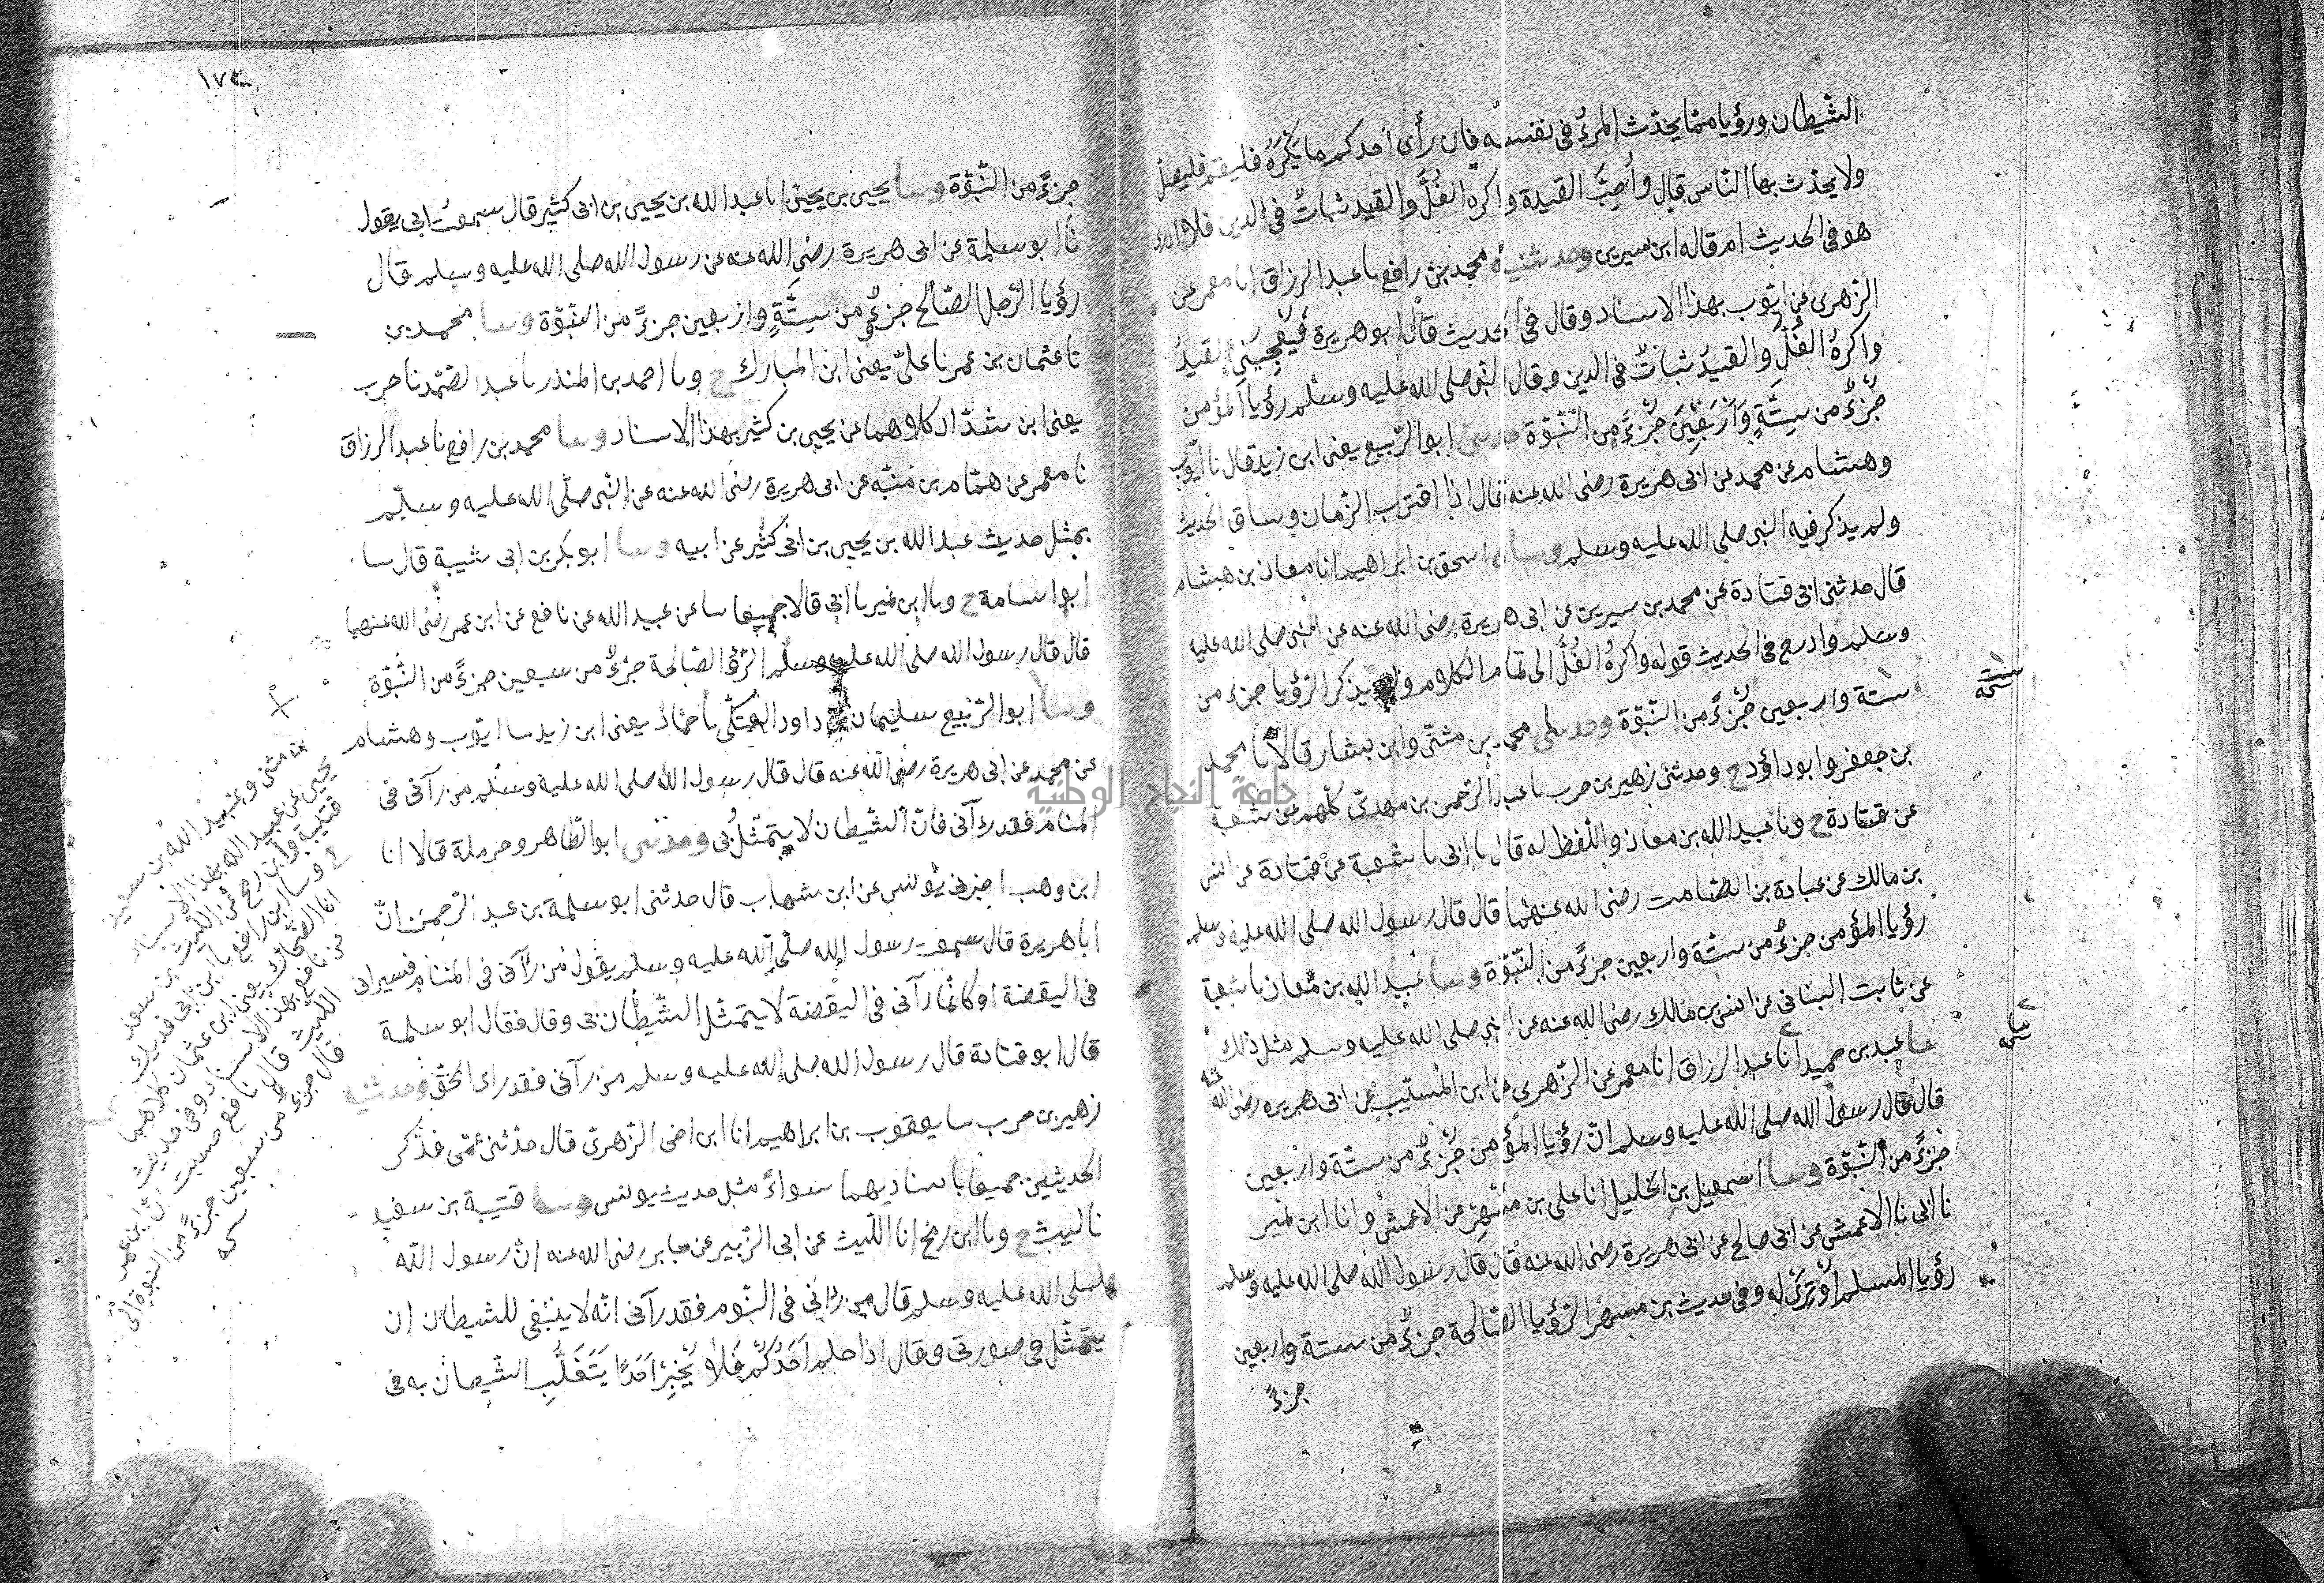 الشيطان ورؤيا مما يحدث المرءُ فى نفسه فان رأى احدكم ما يَكْرَهُ فليقم فليصل
ولا يحدث بها النّاس قال واُحِبُّ القيد واكره الغُلَّ والقيد ثباتٌ فى الدين فلا ادرى
هو فى الحديث ام قاله ابن سيرين وحدثنيه محمد بن رافع نا عبد الرزاق انا معمر عن
الزهرى عن ايّوب بهذا الاسناد وقال فى الحديث قال ابو هريرة فَيُعْجِبُنِى القيدُ
واكرهُ الغُلَّ والقيدُ ثباتٌ فى الدين وقال النّبى صلى الله عليه وسلم رؤيا المؤمن
جُزْءٌ من سِتَّةٍ وَاَرْبَعِينَ جُزْءً من النُّبُوّة حدثنى ابو الرّبيع يعنى ابن زيد قال نا ايّوب
وهشام عن محمد عن ابى هريرة رضى الله عنه قال اذا اقترب الزّمان وساق الحديث
ولم يذكر فيه النبى صلى الله عليه وسلم وسا اسحق بن ابراهيم انا معاذ بن هشام
قال حدثنى ابى قتادة عن محمد بن سيرين عن ابى هريرة رضى الله عنه عن النبى صلى الله عليه
وسلم وادرج فى الحديث قوله واكرهُ الغُلَّ الى تمام الكلام ولم يذكر الرؤيا جزء من
ستة واربعين جُزْءً من النّبوّة وحدثنى محمد بن مثنّى وابن بشار قالا نا محمد
بن جعفر وابو داؤد ح وحدثنى زهير بن حرب نا عبد الرّحمن بن مهدىّ كلّهم عن شعبة
عن قتادة ح ونا عبيد الله بن معاذ واللّفظ له قال نا ابى نا شعبة عن قتادة عن انس
بن مالك عن عبادة بن الصّامت رضى الله عنهما قال قال رسول الله صلى الله عليه وسلم
رؤيا المؤمن جزءٌ من ستّة واربعين جزءً من النّبّوة وسا عبيد الله بن معاذ نا شعبة
عن ثابت البنانى عن انس بن مالك رضى الله عنه عن النبى صلى الله عليه وسلم مثل ذلك
سا عبد بن حميد انا عبد الرزاق انا معمر عن الزّهرى عن ابن المسيّب عن ابى هريرة رضى الله عنه
قال قال رسول الله صلى الله عليه وسلم انّ رؤيا المؤمن جُزْءٌ من ستّة واربعين
جزءً من النّبّوة وسا اسمعيل بن الخليل انا على بن مُسْهِرٍ عن الاعمش وانا ابن نمير
نا ابى نا الاعمش عن ابى صالح عن ابى هريرة رضى الله عنه قال قال رسول الله صلى الله عليه وسلم
رؤيا المسلم اوْ تُرَى له وفى حديث بن مسهر الرّؤيا الصّالحة جزءٌ من ستة واربعين
جزءً
نسخه
نسخه
جامعة النجاح الوطنية
١٧٣
جزءً من النّبوّة وسا يحيى بن يحيىٰ انا عبد الله بن يحيى بن ابى كثير قال سمعت ابى يقول
نا ابو سلمة عن ابى هريرة رضى الله عنه عن رسول الله صلى الله عليه وسلم قال
رؤيا الرّجل الصّالح جزءٌ من سِتَّةٍ واربعين جزءً من النّبّوة وسا محمد بن
نا عثمان بن عمر نا علىّ يعنى ابن المبارك ح ونا احمد بن المنذر نا عبد الصّمد نا حرب
يعنى ابن شدّاد كلاهما عن يحيى بن كثير بهذا الاسناد وسا محمد بن رافع نا عبد الرزاق
نا معمر عن همّام بن مُنَبّه عن ابى هريرة رضى الله عنه عن النّبى صلّى الله عليه وسلّم
بمثل حديث عبد الله بن يحيى بن ابى كثير عن ابيه وسا ابو بكر بن ابى شيبة قال سا
ابو اسامة ح ونا ابن نمير نا ابى قالا جميعا سا عن عبيد الله عن نافع عن ابن عمر رضى الله عنهما
قال قال رسول الله صلى الله عليه وسلم الرّؤيا الصّالحة جزءٌ من سبعين جزءً من النّبّوة
وسا ابو الرّبيع سليمان بن داود العتكى نا حمّاد يعنى ابن زيد سا ايّوب وهشام
عن محمد عن ابى هريرة رضى الله عنه قال قال رسول الله صلى الله عليه وسلم من رآنى فى
المنام فقد رآنى فانّ الشّيطان لا يتمثّلُ بى وحدثنى ابو الطّاهر وحرملة قالا انا
ابن وهب اخبرنى يونس عن ابن شهاب قال حدثنى ابو سلمة بن عبد الرّحمن انّ
ابا هريرة قال سمعت رسول الله صلّى الله عليه وسلم يقول من رآنى فى المنام فسيرانى
فى اليقضة او كانّما رآنى فى اليقضة لا يتمثل الشّيطان بى وقال فقال ابو سلمة
قال ابو قتادة قال رسول الله صلى الله عليه وسلم من رآنى فقد راى الحقّ وحدثنيه
زهير بن حرب سا يعقوب بن ابراهيم انا ابن اخى الزهرىّ قال حدّثنى عمّى فذكر
الحديثين جميعا باسناديهما سواءً مثل حديث يونس وسا قتيبة بن سعيد
نا ليث ح ونا ابن رمح انا اللّيث عن ابى الزّبير عن جابر رضى الله عنه انّ رسول الله
صلى الله عليه وسلم قال من رانى فى النّوم فقد رآنى انّه لا ينبغى للشيطان ان
يتمثّل فى صورتى وقال اذا حلم اَحَدُكُمْ فَلا يُخْبِرْ اَحَدًا يَتَغَلَّبِ الشّيطان به فى
بن مثنى وعبيد الله بن سعيد
يحيى عن عبيد الله بهذا الاسناد
قتيبة وابن رمح عن الليث بن سعد
ح وسا ابن رافع نا بن ابى فديك
انا الضّحاك يعنى ابن عثمان كلاهما
عن نافع بهذا الاسناد وفى حديث
الليث قال نافع حسبت ان ابن عمر
قال جزء من سبعين جزءً من النبوة